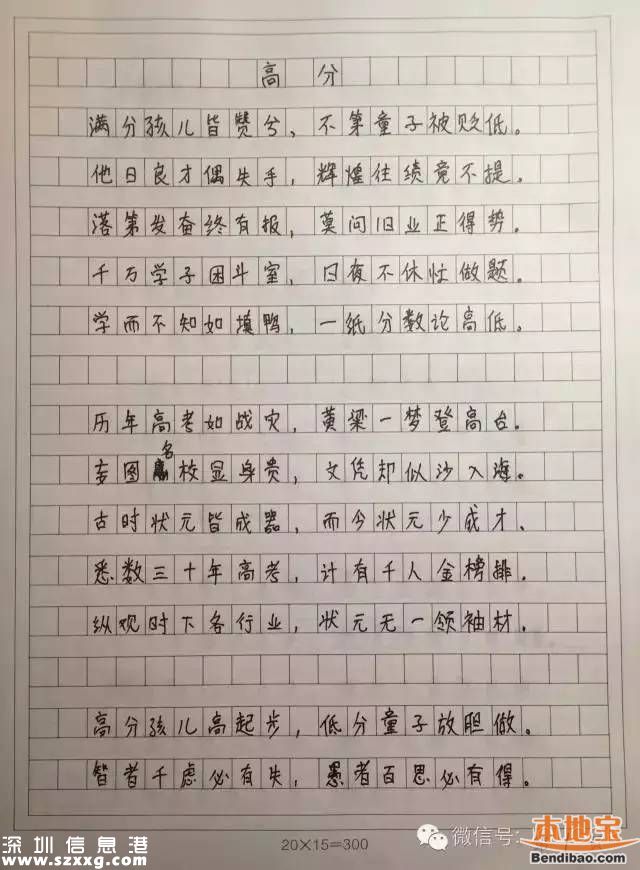 高分
满分孩儿皆赞兮，不第童子被贬低。
他日良才偶失手，辉煌往绩竟不提。
落第发奋终有报，莫问旧业正得势。
千万学子困斗室，日夜不休忙做题。
学而不知如填鸭，一纸分数论高低。
历年高考如战灾，黄梁一梦登高台。
名
图校显身贵，文凭却似沙入海。
古时状元皆成器，而今状元少成才、
悉数三十年高考，计有千人金榜排．
纵观时下各行业，状元无一领袖材．
高分孩儿高起步，低分童子放胆做。
智者千虑必有失，愚者百思必有得。
20×15=300
微信号：
本地宝
Bendibao.com
深圳信息港
www.szxxg.com